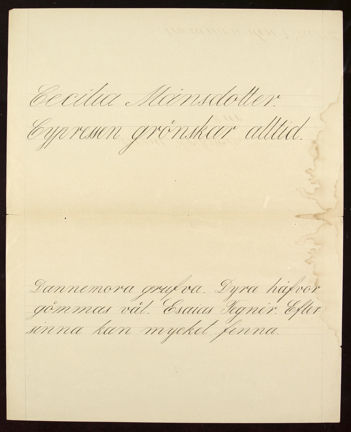 Cecilia Månsdotter.
Cypressen grönskar alltid.
Dannemora grufva. Dyra håfvor
gömmas väl. Esaias Tegnér. Efter
sinna kan mycket finna.